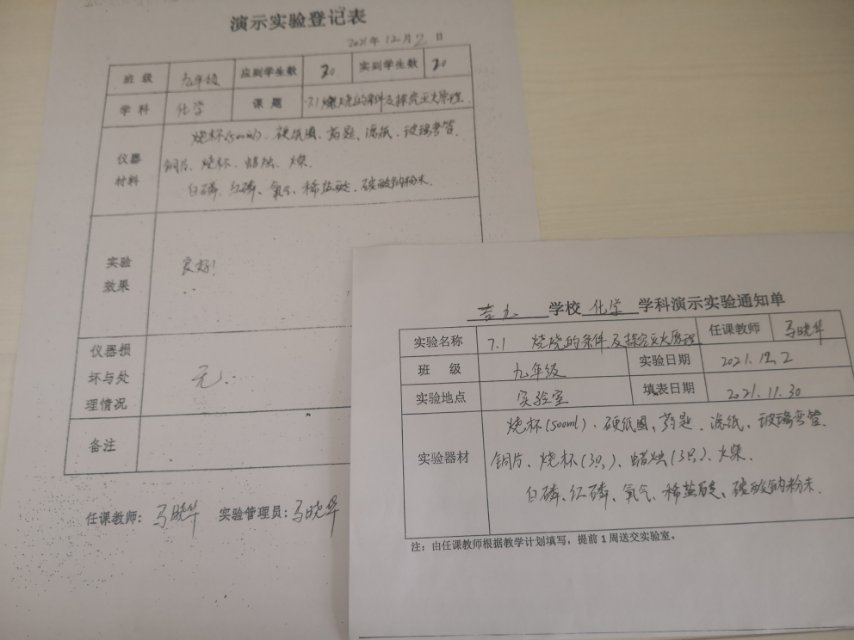 演示实验登记表
2021年12月2日
班级 九年级 应到学生数 20 实到学生数 20
学科 化学 课题 7.1燃烧的条件及探究灭火原理
仪器材料
烧杯(500ml)、硬纸圈、药匙、滤纸、玻璃弯管
铜片、烧杯、蜡烛、火柴
白磷、红磷、氧气、稀盐酸、碳酸钠粉末
实验效果 良好!
仪器损坏与处理情况 无.
备注
任课教师: 马晓华 实验管理员: 马晓华
学校 化学 学科演示实验通知单
实验名称 7.1 燃烧的条件及探究灭火原理 任课教师 马晓华
班级 九年级 实验日期 2021.12.2
实验地点 实验室 填表日期 2021.11.30
实验器材
烧杯(500ml)、硬纸圈、药匙、滤纸、玻璃弯管
铜片、烧杯(3只)、蜡烛(3只)、火柴.
白磷、红磷、氧气、稀盐酸、碳酸钠粉末.
注:由任课教师根据教学计划填写,提前1周送交实验室。